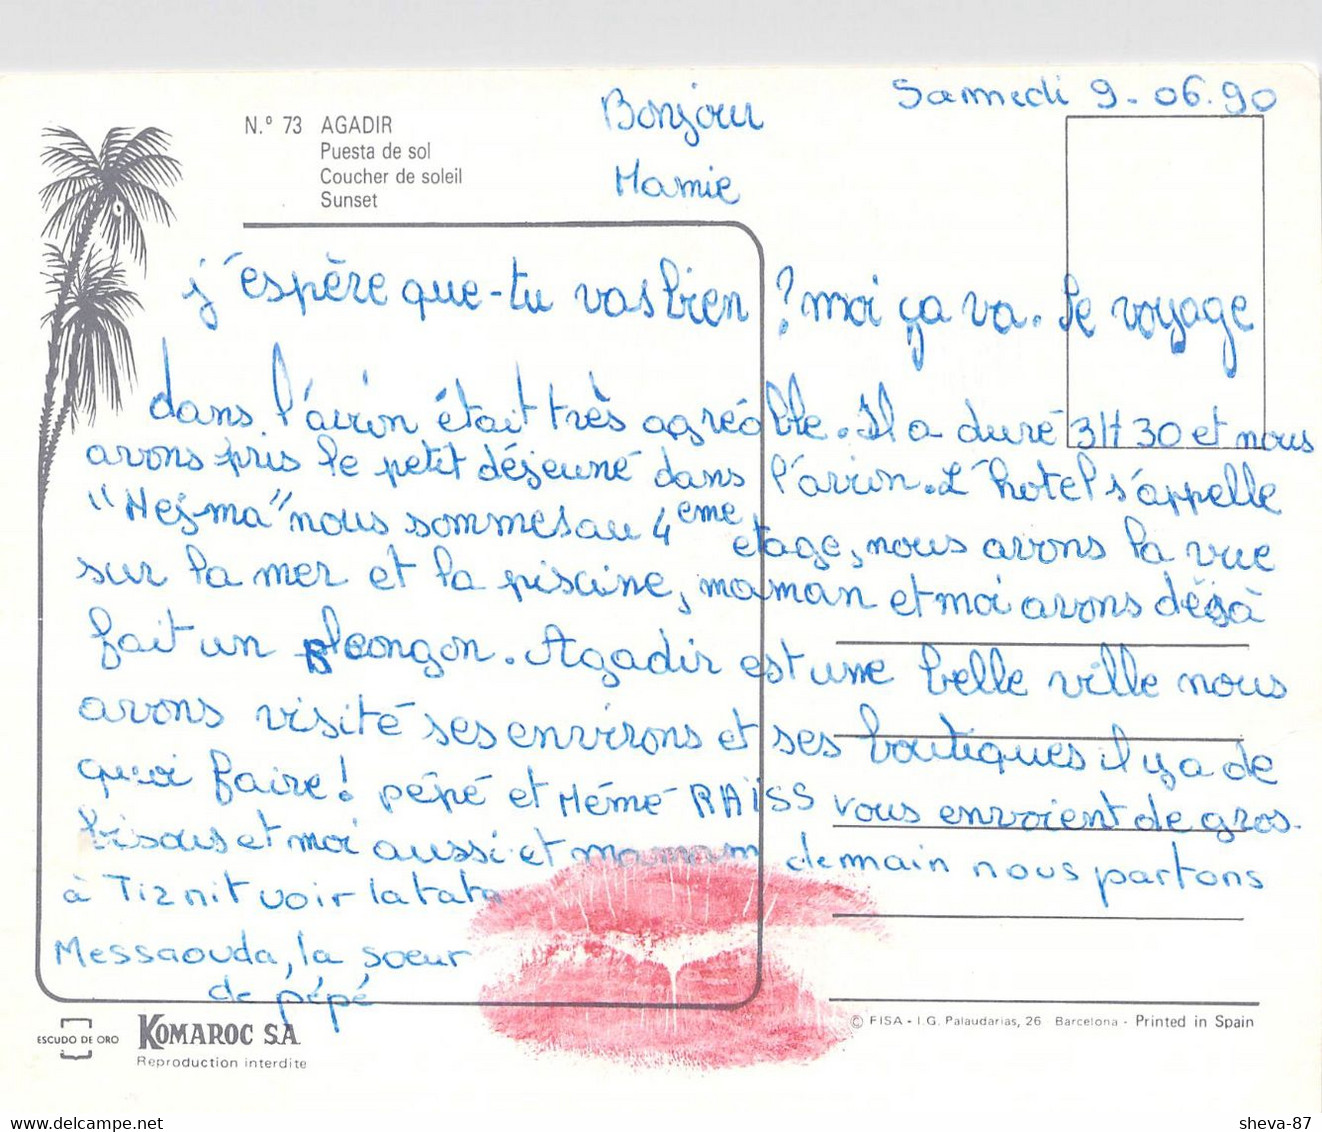 Samedi 9-06.90
N.º 73 AGADIR
Puesta de sol
Coucher de soleil
Sunset
Bonjour
Mamie
j'espère que-tu vas bien ? moi ça va. Le voyage
dans l'avion était très agréable. Il a duré 3H30 et nous
avons pris le petit déjeuné dans l'avion. L'hotel s'appelle
"Nej-ma" nous sommes au 4eme etage, nous avons la vue
sur la mer et la piscine, maman et moi avons déjà
fait un plongon. Agadir est une belle ville nous
avons visité ses environs et ses boutiques il y a de
quoi faire! pépé et Mémé RAISS vous envoient de gros
bisous et moi aussi et maman demain nous partons
à Tiznit voir la tata
Messaouda, la soeur
de pépé
ESCUDO DE ORO
KOMAROC S.A.
Reproduction interdite
© FISA - I.G. Palaudarias, 26 Barcelona - Printed in Spain
sheva-87